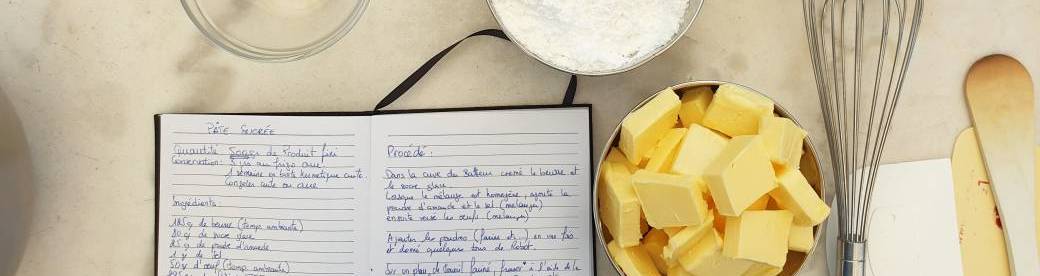 PÂTE SUCRÉE
Quantité: 500gr de Produit fini
Conservation: 3 jrs au frigo crue.
1 semaine en boîte hermetique cuite.
Congeler cuite ou crue.
Ingrédients:
125g de beurre (temp. ambiante)
80g de sucre glace
25g de poudre d'amande
1 g de sel
50g d'œuf (temp. ambiante)
Procédé:
Dans la cuve du Batteur cremé le beurre et
le sucre glace.
Lorsque le mélange est homogène, ajouté la
poudre d'amande et le sel. (mélangé)
ensuite versé les œufs (mélangé)
Ajouter les poudres (farine et...) en une fois
et donné quelques tours de Robot.
Sur un plan de travail fariné, à l'aide de la